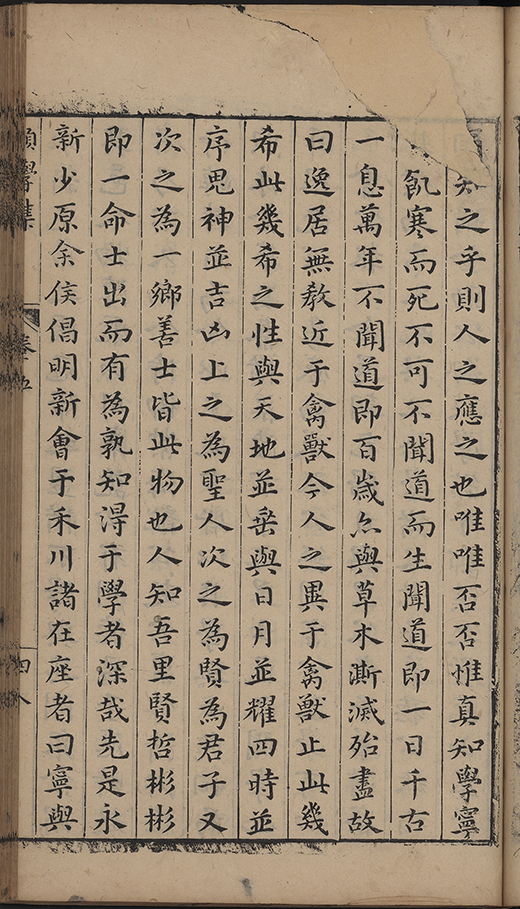 知之乎則人之應之也唯唯否否惟真知學寧
飢寒而死不可不聞道而生聞道即一日千古
一息萬年不聞道即百歲亦與草木澌滅殆盡故
曰逸居無教近于禽獸今人之異于禽獸止此幾
希此幾希之性與天地並垂與日月並耀四時並
序鬼神並吉凶上之為聖人次之為賢為君子又
次之為一鄉善士皆此物也人知吾里賢哲彬彬
即一命士出而有為孰知得于學者深哉先是永
新少原余侯倡明新會于禾川諸在座者曰寧與
學集
卷五
四八